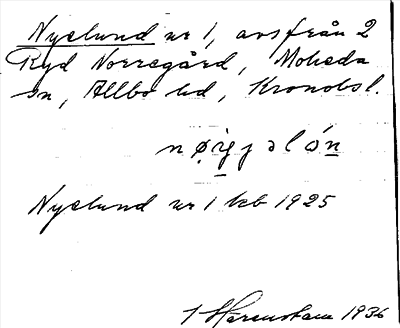 Nyelund nr 1, avs från 2
Ryd Norregård, Moheda
sn, Allbo hd, Kronobsl.
Nyelund nr 1 kb 1925
I Harenstam 1936